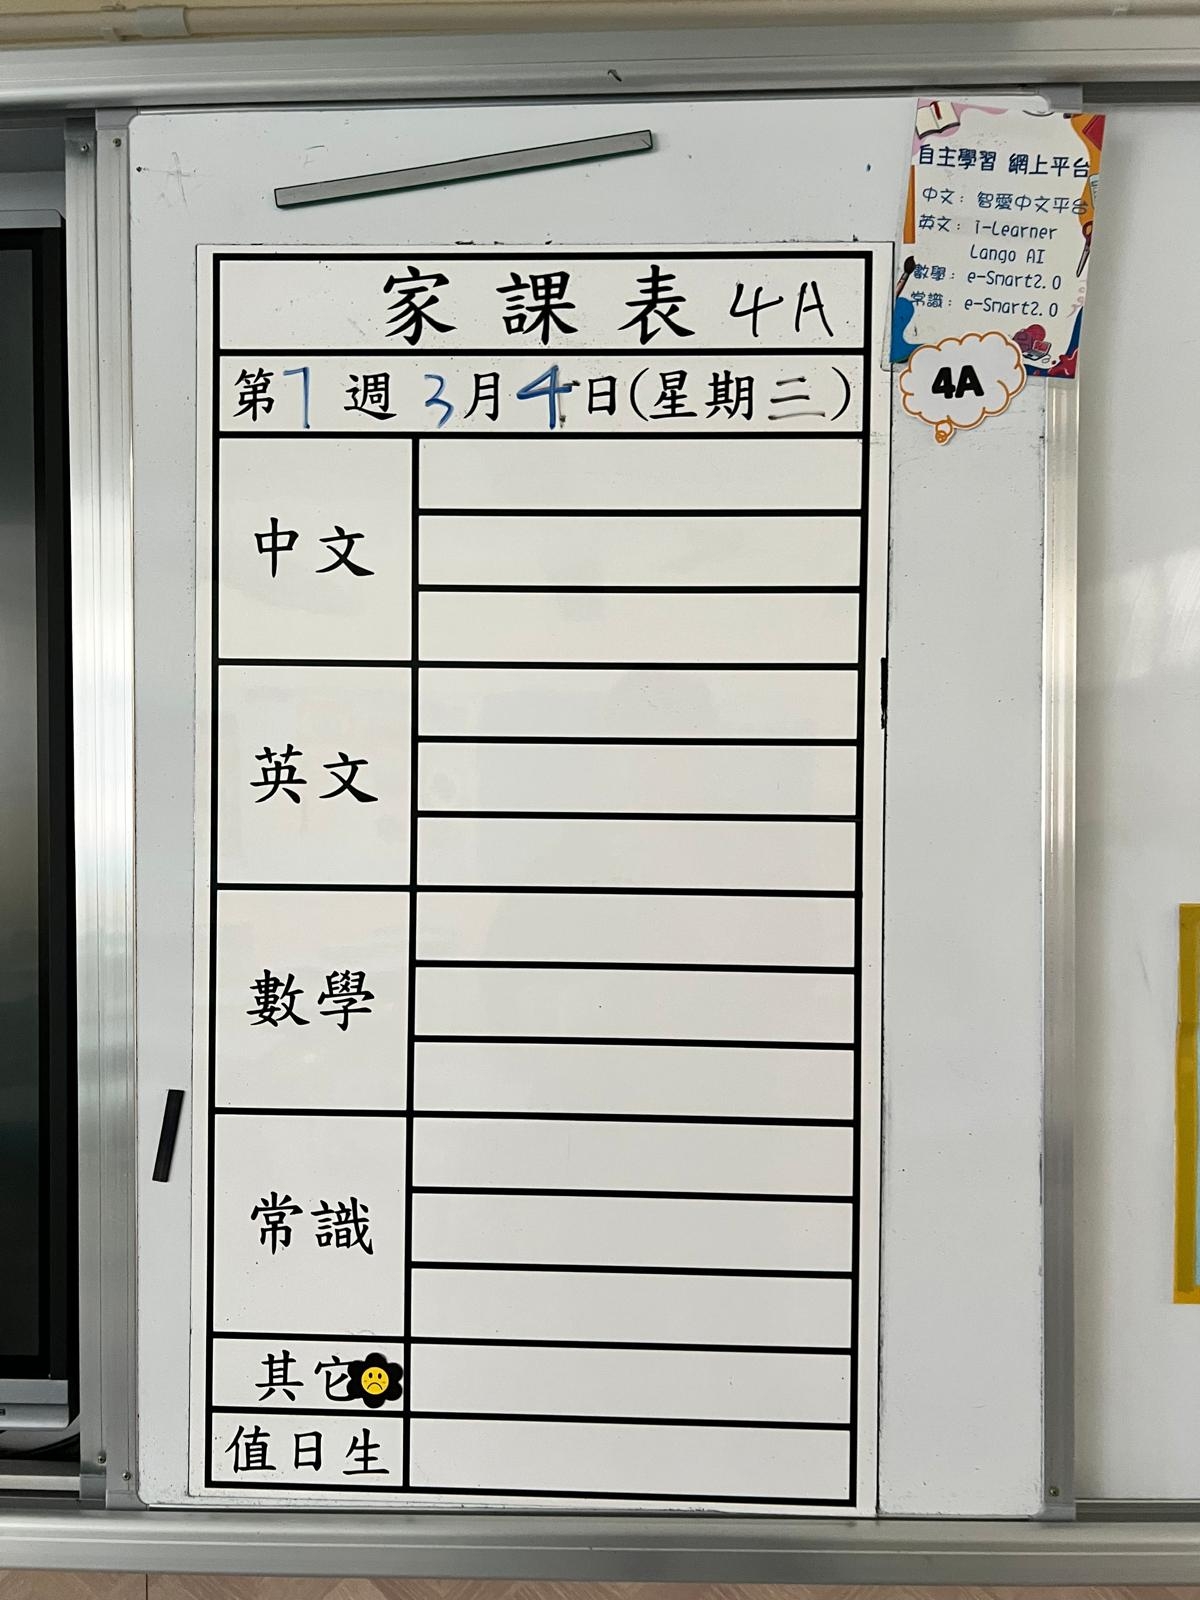 自主學習 網上平台
中文：智愛中文平台
英文：i-Learner
Lango AI
數學：e-Smart2.0
常識：e-Smart2.0
4A
家課表 4A
第7週3月4日(星期三)
中文
英文
數學
常識
其它
值日生